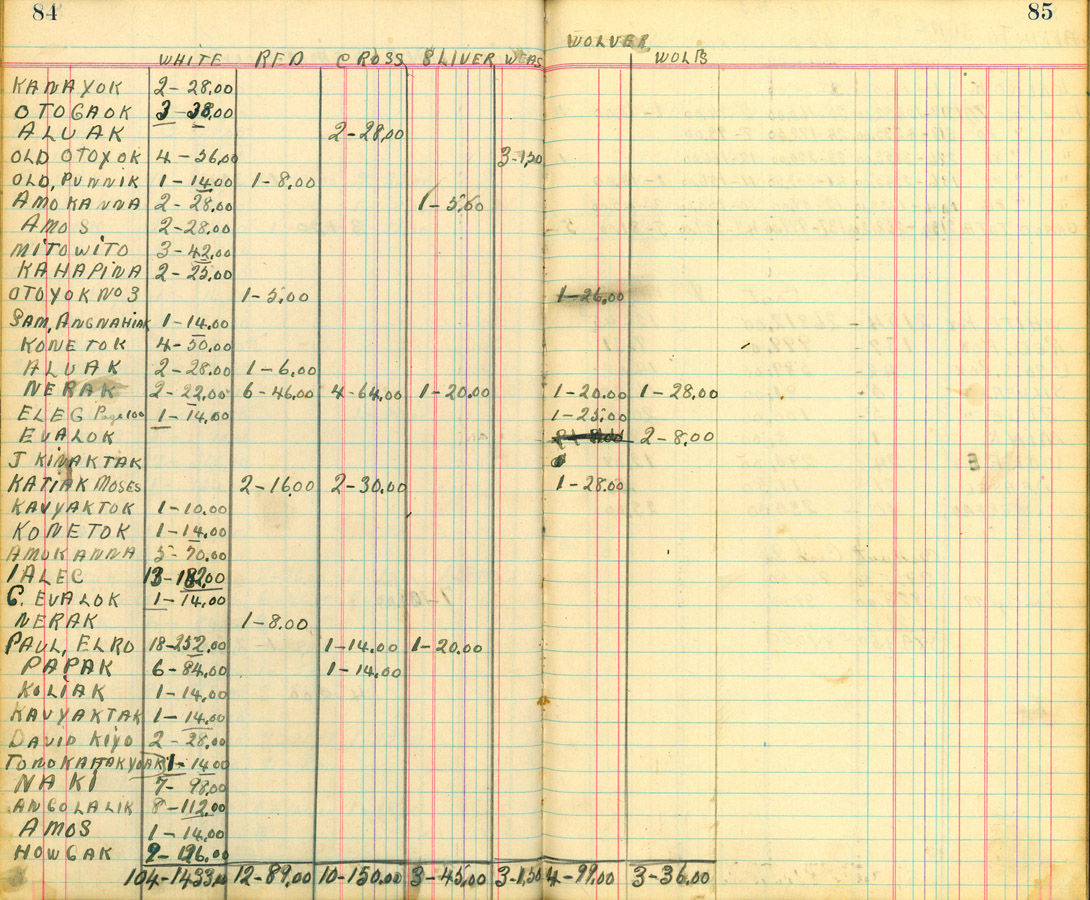 84 85
WOLVER
WHITE RED CROSS SLIVER WEAS WOLB
KANAYOK 2-28.00
OTOGAOK 3-38.00
ALUAK 2-28.00
OLD OTOYOK 4-56.00 3-1,50
OLD, PUNNIK 1-14.00 1-8.00
AMOKANNA 2-28.00 1-5.00
AMOS 2-28.00
MITOWITO 3-42.00
KAHAPINA 2-25.00
OTOYOK No 3 1-5.00 1-26.00
SAM, ANGNAHIAK 1-14.00
KONETOK 4-50.00
ALUAK 2-28.00 1-6.00
NERAK 2-22.00 6-46.00 4-64.00 1-20.00 1-20.00 1-28.00
ELEG Page 100 1-14.00 1-25.00
EVALOK 2-8.00
J KINAKTAK
KATIAK MOSES 2-16.00 2-30.00 1-28.00
KAVYAKTOK 1-10.00
KONETOK 1-14.00
AMOKANNA 5-70.00
1 ALEC 13-182.00
C. EVALOK 1-14.00
NERAK 1-8.00
PAUL, ELRO 18-252.00 1-14.00 1-20.00
PAPAK 6-84.00 1-14.00
KOLIAK 1-14.00
KAVYAKTAK 1-14.00
DAVID KIYO 2-28.00
1-14.00
NAKI 7-98.00
ANGOLALIK 8-112.00
AMOS 1-14.00
HOWGAK 9-126.00
104-1433.00 12-89.00 10-150.00 3-45.00 3-1,50 4-99.00 3-36.00